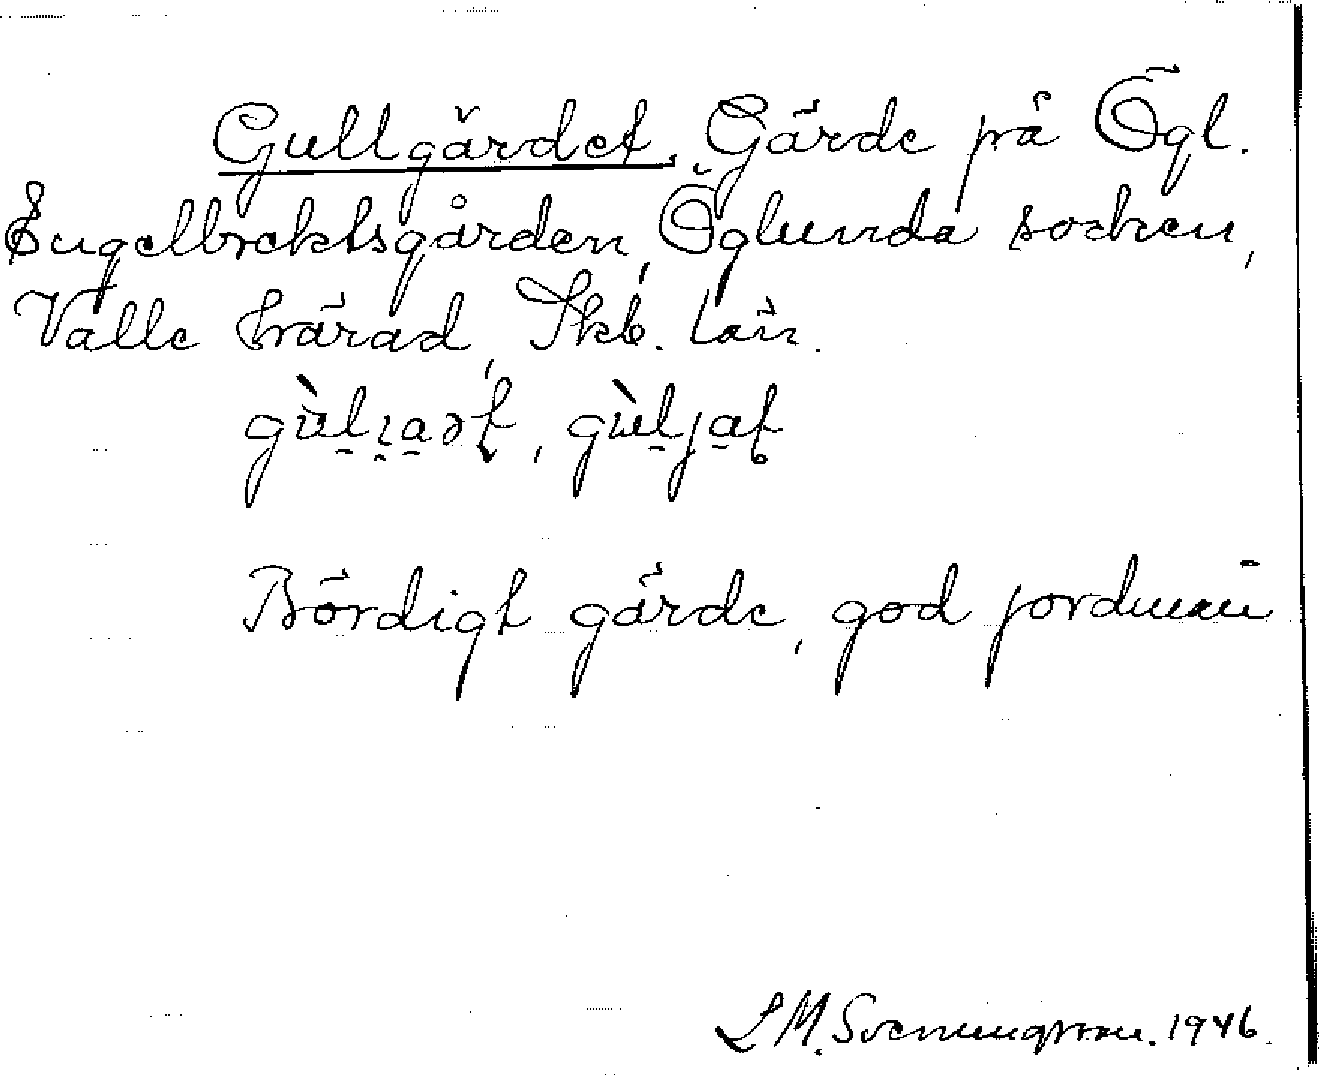 Gullgärdet. Gärde på Ögl.
Engelbrektsgården, Öglunda socken,
Valle härad, Skb. län.
Bördigt gärde, god jordmån
L M. Svenungsson. 1946.